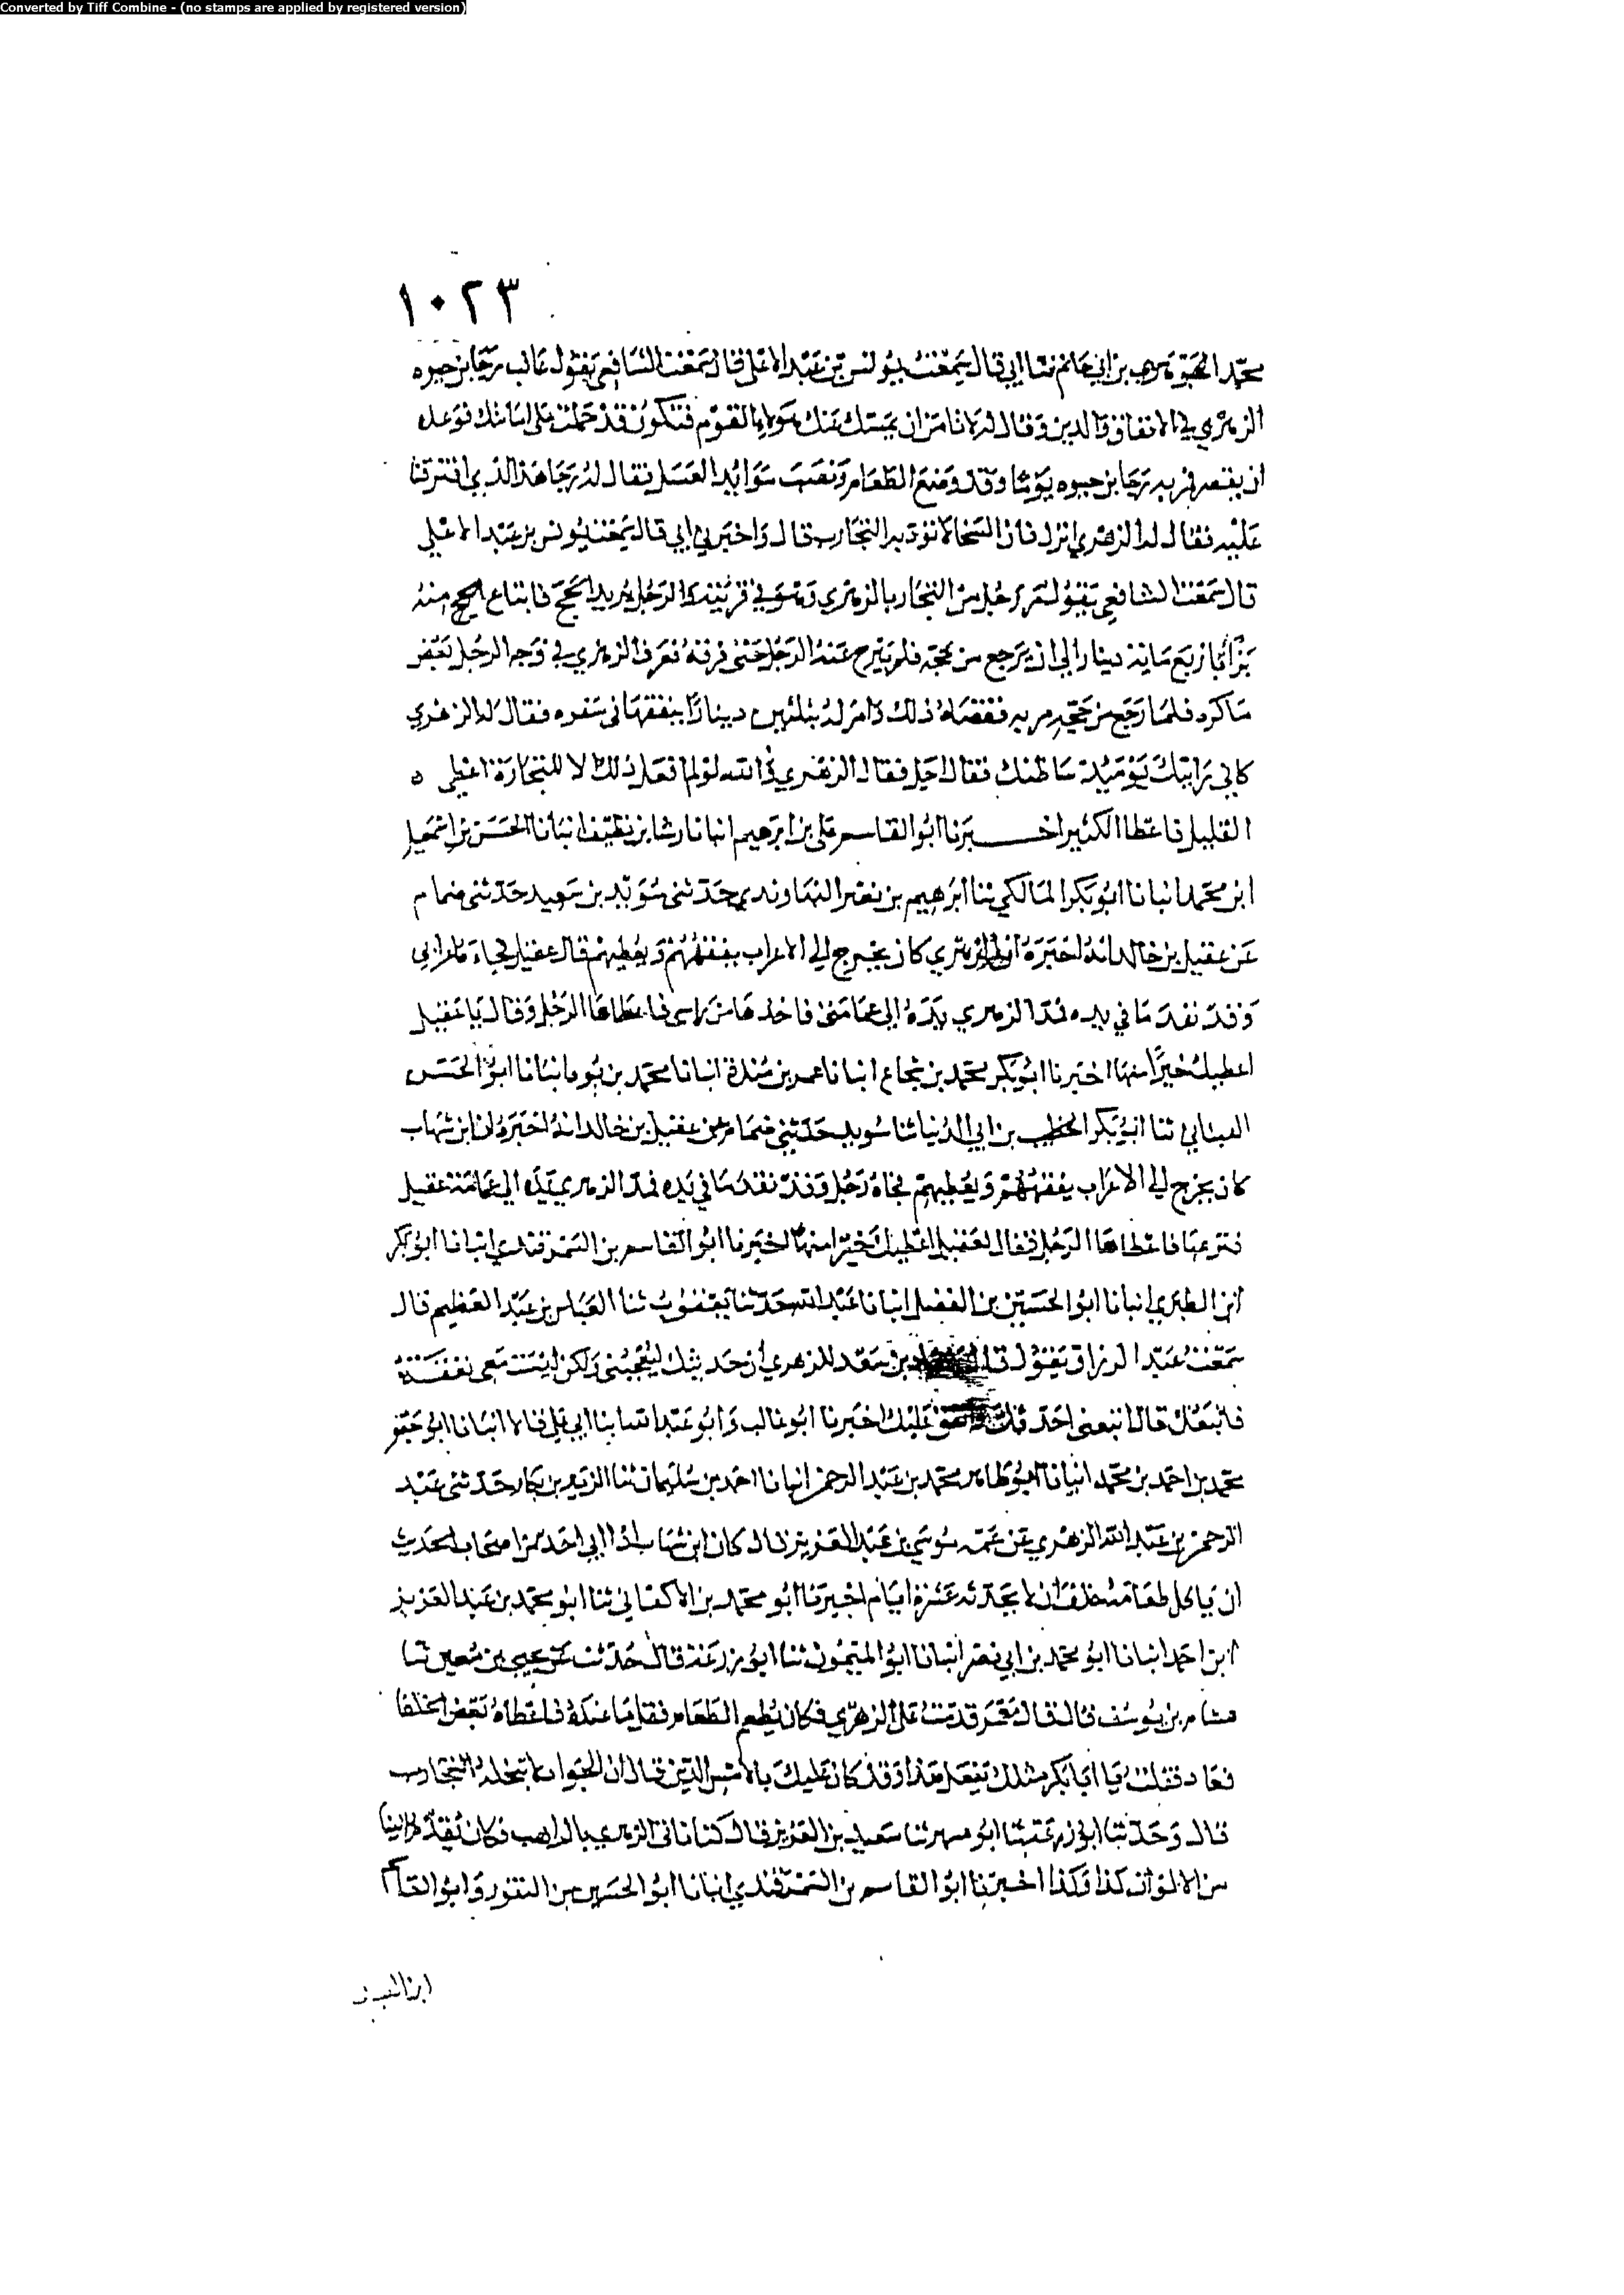 Converted by Tiff Combine - (no stamps are applied by registered version)
١٠٢٣
محمد بن ابي حاتم ثنا ابي قال سمعت يونس بن عبد الاعلى قال سمعت الشافعي يقول عاتب رجا بن حيوه
الزهري في الانفاق والدين وقال له لا نامن ان يمسك عنك هولاء القوم فتكون قد حملت على امانتك فوعده
ان يقصر فمر به رجا بن حيوه يوما وقد وضع الطعام ونصب موايد العسل فقال له رجا هذا الذي افترقنا
عليه فقال له الزهري انزل فان السخي لا تؤدبه التجارب قال واخبرني ابي قال سمعت يونس بن عبد الاعلى
قال سمعت الشافعي يقول مر رجل من التجار بالزهري وهو في قريته والرجل يريد الحج فابتاع منه
بزا باربع ماية دينار الى ان يرجع من حجه فلم يبرح عنه الرجل حتى فرقه فعرف الزهري في وجه الرجل بعض
ما كره فلما رجع من حجه مر به فقضاه ذلك وامر له بثلثين دينارا ينفقها في سفره فقال له الزهري
كاني رايتك يوميذ ساظنك فقال اجل فقال الزهري والله لم افعل ذلك الا للتجارة اعطي ه
القليل فاعطا الكثير اخبرنا ابو القاسم علي بن ابرهيم انبانا رشا بن نظيف انبانا الحسن بن اسمعيل
ابن محمد انبانا ابو بكر المالكي ثنا ابرهيم بن نصر النهاوندي حدثني سويد بن سعيد حدثني ضمام
عن عقيل بن خالد انه اخبره ان الزهري كان يخرج الى الاعراب يفقههم ويعطيهم قال عقيل فجاء اعرابي
وقد نفد ما في يده فمد الزهري يده الى عمامتي فاخذها من راسي فاعطاها الرجل وقال يا عقيل
اعطيك خيرا منها اخبرنا ابو بكر محمد بن شجاع انبانا عمر بن مندة انبانا محمد بن يوه انبانا ابو الحسن
ثنا ابو بكر بن ابي الدنيا ثنا سويد حدثني ضمام عن عقيل بن خالد انه اخبره ان ابن شهاب
كان يخرج الى الاعراب يفقههم ويعطيهم فجاه رجل وقد نفد ما في يده فمد الزهري يده الى عمامة عقيل
فنزعها فاعطاها الرجل فقال لعقيل اعطيك خيرا منها اخبرنا ابو القاسم بن السمرقندي انبانا ابو بكر
ابن الطبري انبانا ابو الحسين بن الفضل انبانا عبد الله حدثنا يعقوب ثنا العباس بن عبد العظيم قال
سمعت عبد الرزاق يقول قال بن سعد للزهري ان حديثك ليعجبني ولكن ليست معي نفقة
فاتبعك قال اتبعني احدثك وانفق عليك اخبرنا ابو غالب وابو عبد الله ابنا ابي علي قالا انبانا ابو جعفر
محمد بن احمد بن محمد انبانا ابو طاهر محمد بن عبد الرحمن انبانا احمد بن سليمان ثنا الزبير بن بكار حدثني عبد
الرحمن بن عبد الله الزهري عن عمه موسى بن عبد العزيز قال كان ابن شهاب اذا ابى احد من اصحاب الحديث
ان ياكل طعامه حلف ان لا يحدثه عشرة ايام اخبرنا ابو محمد بن الاكفاني ثنا ابو محمد بن عبد العزيز
ابن احمد انبانا ابو محمد بن ابي نصر انبانا ابو الميمون ثنا ابو زرعة قال حدثت عن يحيى بن معين ثنا
هشام بن يوسف قال قال معمر قدمت على الزهري فكان يطعم الطعام فقل ما عنده فاعطاه بعض الخلفا
فعاد فقلت يا ابا بكر مثلك يفعل هذا وقد كان عليك بالامس الدين قال ان الجواد لا تبخله التجارب
قال وحدثنا ابو زرعة ثنا ابو مسهر ثنا سعيد بن العزيز قال كنا ناتي الزهري بالراهب فكان يقدم الينا
من الالوان كذا وكذا اخبرنا ابو القاسم بن السمرقندي انبانا ابو الحسين بن النقور وابو القاسم